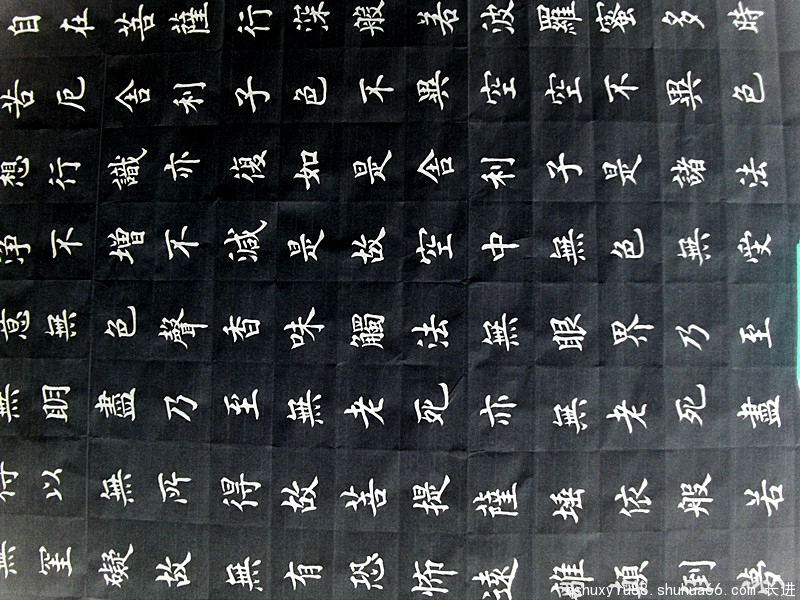 自在菩薩行深般若波羅蜜多時
苦厄舍利子色不異空空不異色
想行識亦復如是舍利子是諸法
淨不增不減是故空中無色無受
意無色聲香味觸法無眼界乃至
無明盡乃至無老死亦無老死盡
得以無所得故菩提薩埵依般若
無罣礙故無有恐怖遠離顛倒夢
shuhua66.com 长进